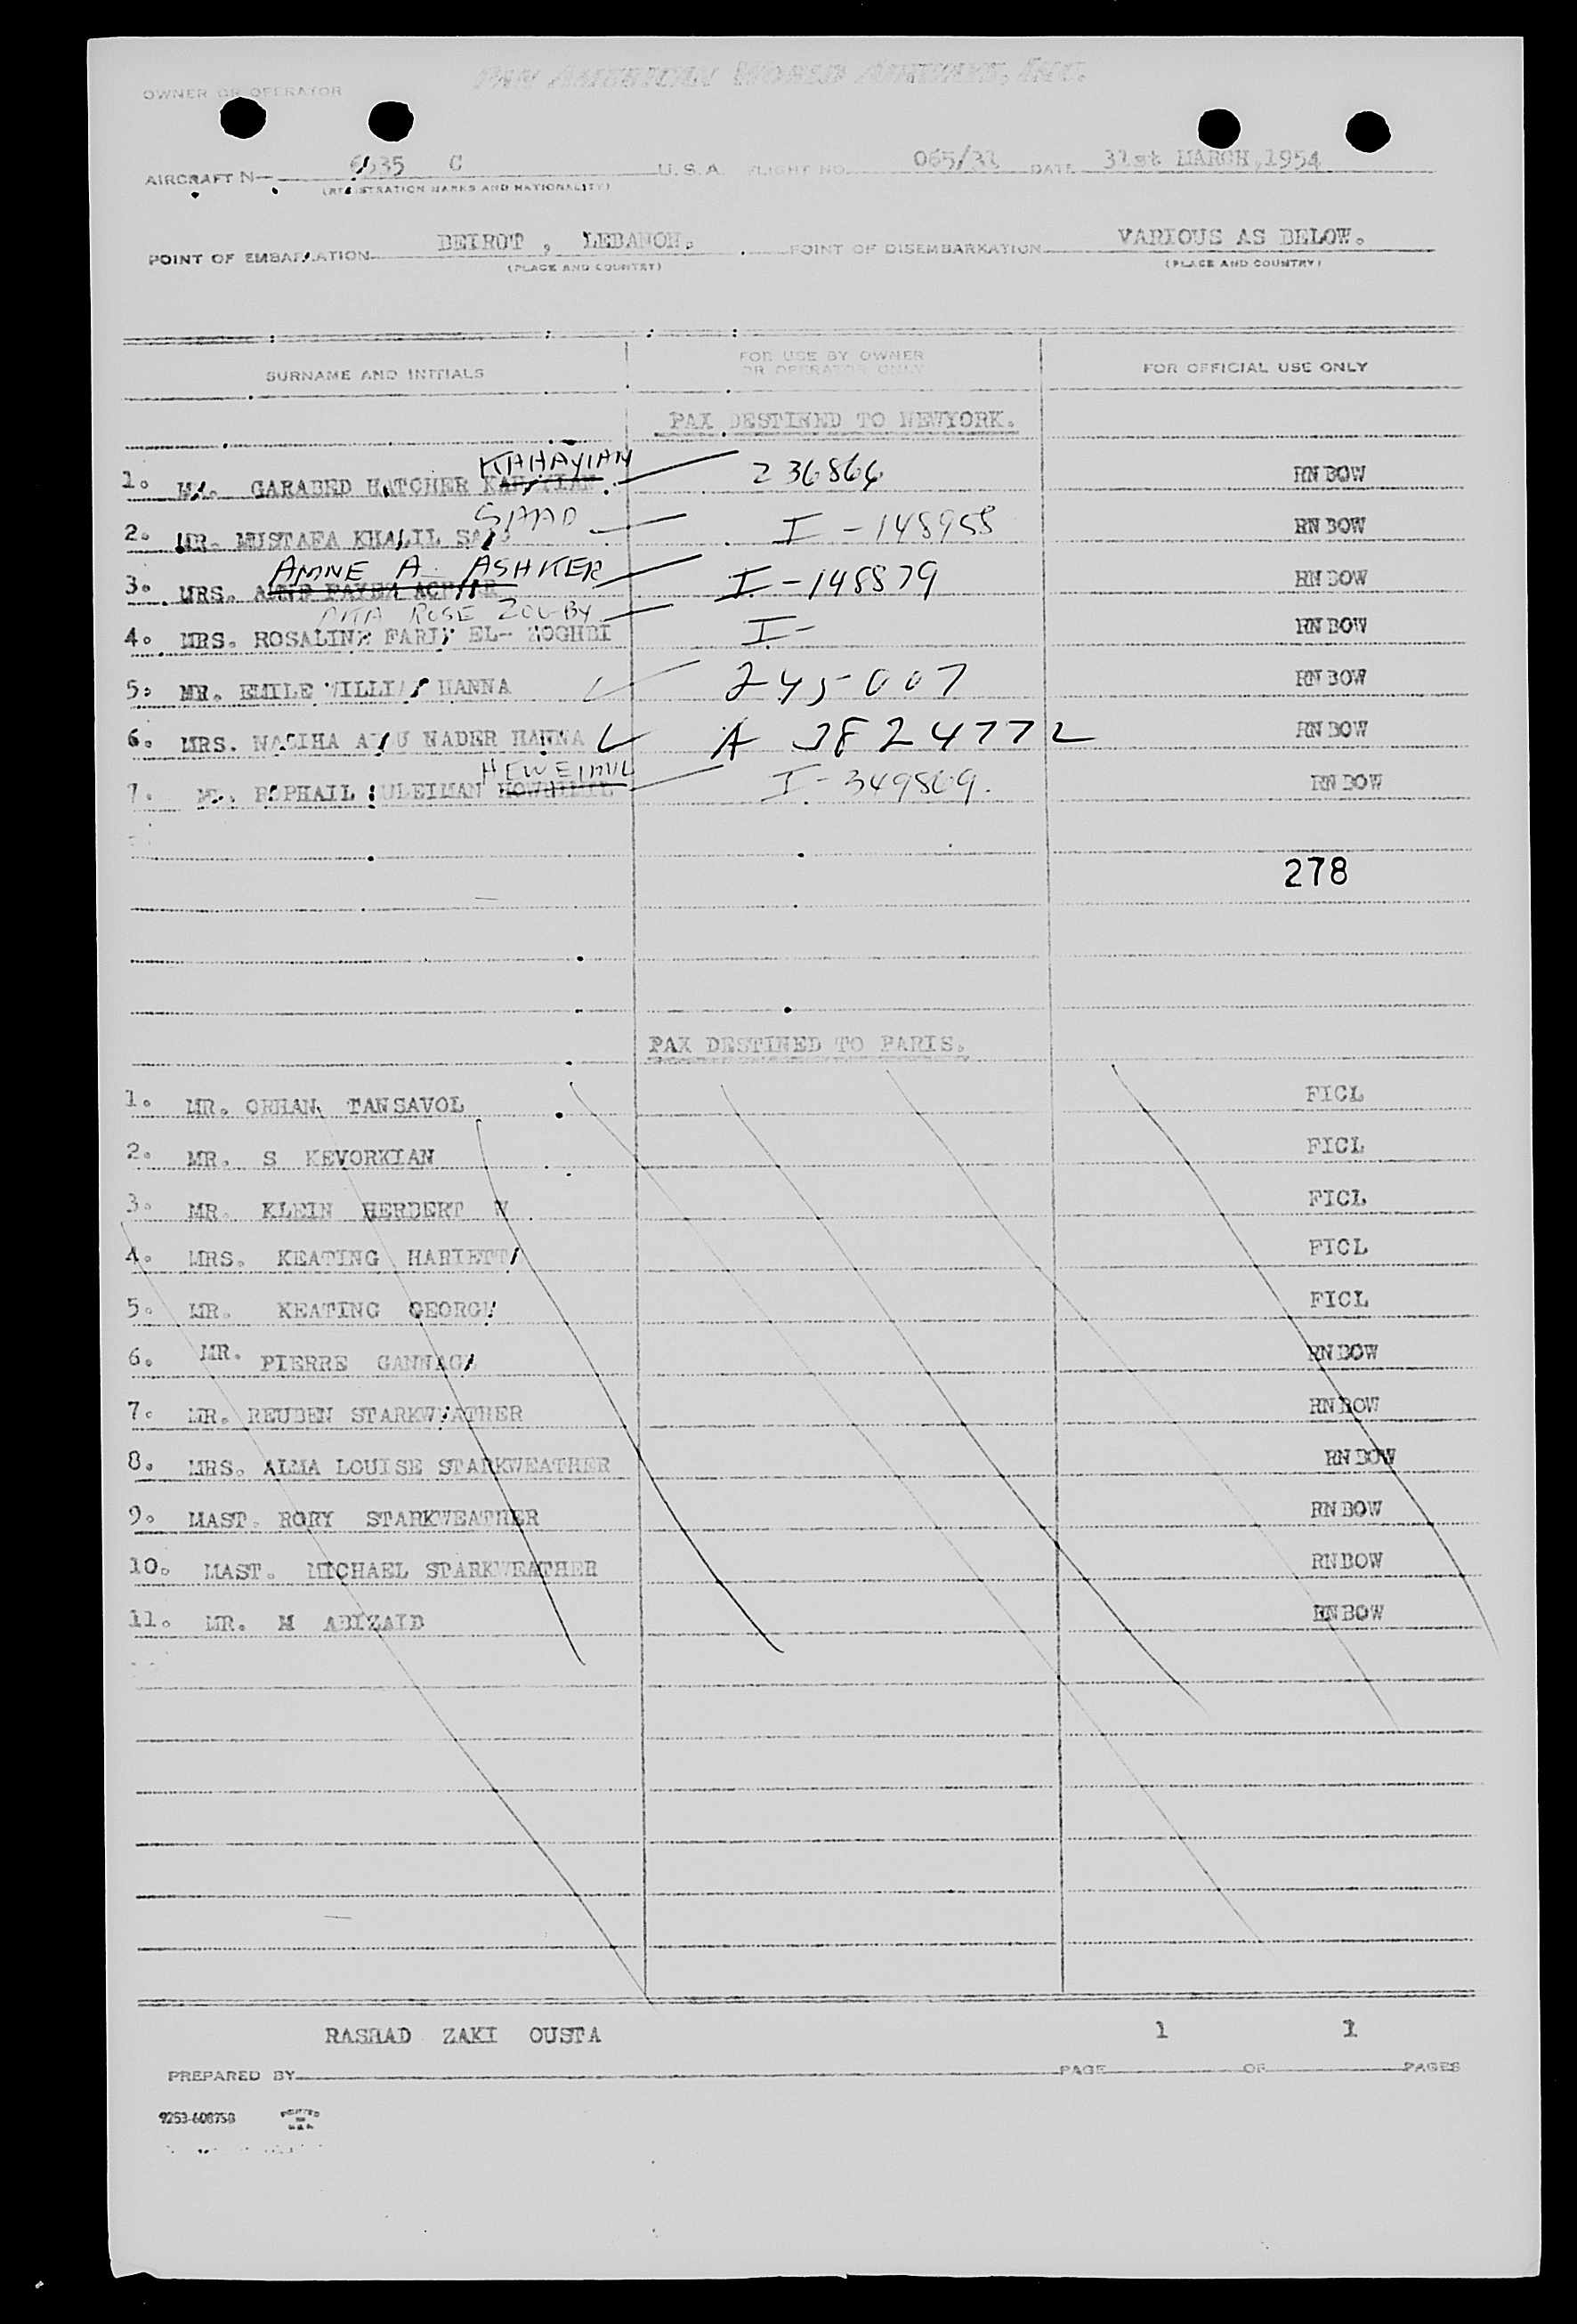 PAN AMERICAN WORLD AIRWAYS, INC.
OWNER OR OPERATOR
AIRCRAFT N— 6535 C U.S.A. FLIGHT NO. 065/31 DATE 31st MARCH,1954
(REGISTRATION MARKS AND NATIONALITY)
POINT OF EMBARKATION BEIRUT , LEBANON. POINT OF DISEMBARKATION VARIOUS AS BELOW.
(PLACE AND COUNTRY) (PLACE AND COUNTRY)
SURNAME AND INITIALS FOR USE BY OWNER OR OPERATOR ONLY FOR OFFICIAL USE ONLY
PAX DESTINED TO NEWYORK.
KAHAYIAN
1. MR. GARABED HATCHER 236866 RNBOW
SAAD
2. MR. MUSTAFA KHALIL SAAD I-148958 RNBOW
AMNE A. ASHKER
3. MRS. I-148879 RNBOW
RITA ROSE ZOUBY
4. MRS. ROSALINE FARID EL- ZOGHBI I- RNBOW
5. MR. EMILE WILLIAM HANNA 245007 RNBOW
6. MRS. NASIHA ABOU NADER HANNA A 7824772 RNBOW
HEWEIMIL
7. MR. ROPHAIL SULEIMAN I-349869. RNBOW
278
PAX DESTINED TO PARIS.
1. MR. ORHAN TANSAVOL FICL
2. MR. S KEVORKIAN FICL
3. MR. KLEIN HERBERT W FICL
4. MRS. KEATING HARIETTA FICL
5. MR. KEATING GEORGE FICL
6. MR. PIERRE GANNAGE RNBOW
7. MR. REUBEN STARKWEATHER RNBOW
8. MRS. ALMA LOUISE STARKWEATHER RNBOW
9. MAST. RORY STARKWEATHER RNBOW
10. MAST. MICHAEL STARKWEATHER RNBOW
11. MR. M ABIZAID RNBOW
RASHAD ZAKI OUSTA 1 1
PREPARED BY PAGE OF PAGES
9253-608758 PRINTED IN U.S.A.